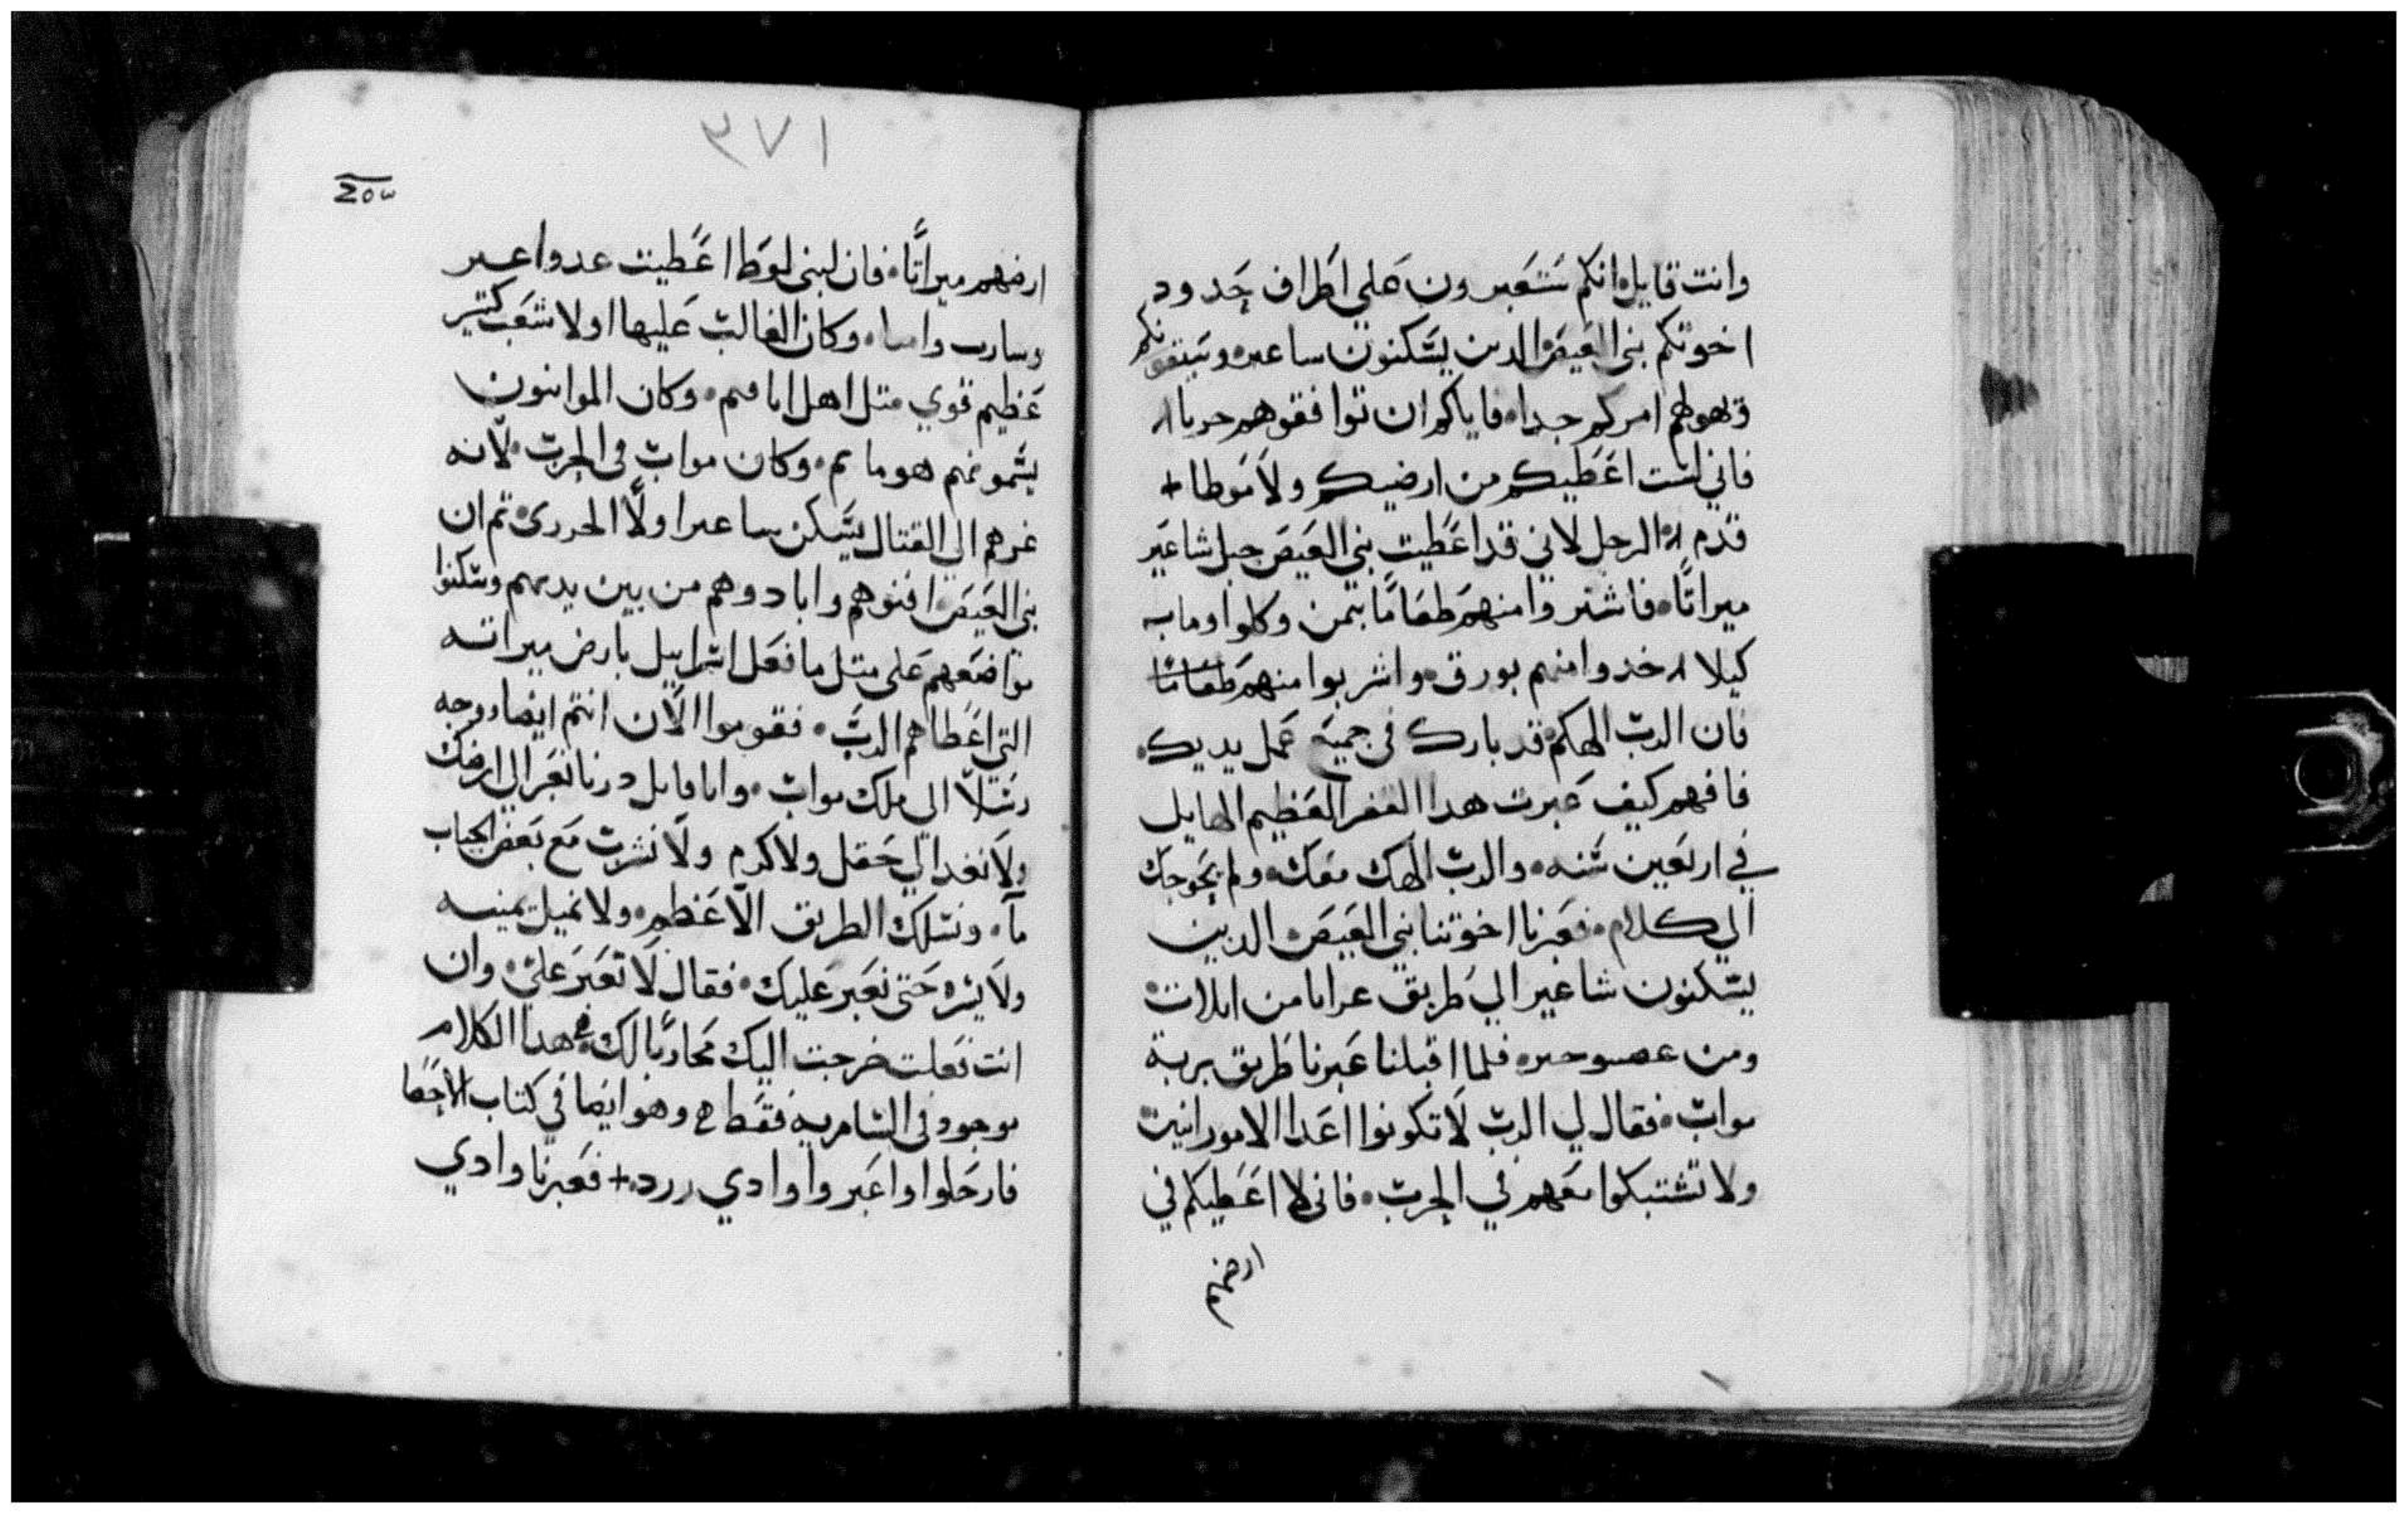 وانت قايل انكم ستعبرون علي اطراف حدود
اخوتكم بني العيص الدين يسكنون ساعير ويتقونكم
امركم جدا فاياكم ان توافقوهم حربا
فاني لست اعطيكم من ارضيكم ولا موطا
قدم الرجل لاني قد اعطيت بني العيص جبل شاعير
ميراتا فاشتروا منهم طعاما بتمن وكلوا وما به
كيلا خدوا منهم بورق واشربوا منهم طعاما
فان الرب الهكم قد بارك في جميع عمل يديك
فافهم كيف عبرت هدا القفر العظيم الهايل
في اربعين سنه والرب الهك معك ولم يحوجك
الي كلام فعبرنا اخوتنا بني العيص الدين
يسكنون شاعير الي طريق عرابا من ايلات
ومن فلما اقبلنا عبرنا طريق برية
مواب فقال لي الرب لا تكونوا اعدا الامورانيين
ولا تشتبكوا معهم في الحرب فاني لا اعطيكم في
ارضهم
٢٧١
ارضهم ميراتا فان لبني لوط اعطيت عدوا عير
وكان الغالب عليها اولا شعب كتير
عظيم قوي متل اهل وكان الموابنون
يسمونهم وكان مواب في الحرب لانه
غرهم الي القتال يسكن ساعير اولا تم ان
بني العيص افنوهم وابادوهم من بين يديهم وسكنوا
مواضعهم علي متل ما فعل اسراييل بارض ميراته
التي اعطاهم الرب فقوموا الان انتم ايضا ووجه
رسلا الي ملك مواب وانا قايل درنا نعبر الي ارضك
ولا نغدا الي حقل ولا كرم ولا نشرب مع بعض الجباب
ما ونسلك الطريق الاعظم ولا نميل يمنه
ولا يسره حتي نعبر عليك فقال لا تعبر علي وان
انت فعلت خرجت اليك محاربا لك هدا الكلام
موجود في السامريه فقط وهو ايضا في كتاب الاحصا
فارحلوا واعبروا وادي زرد + فعبرنا وادي